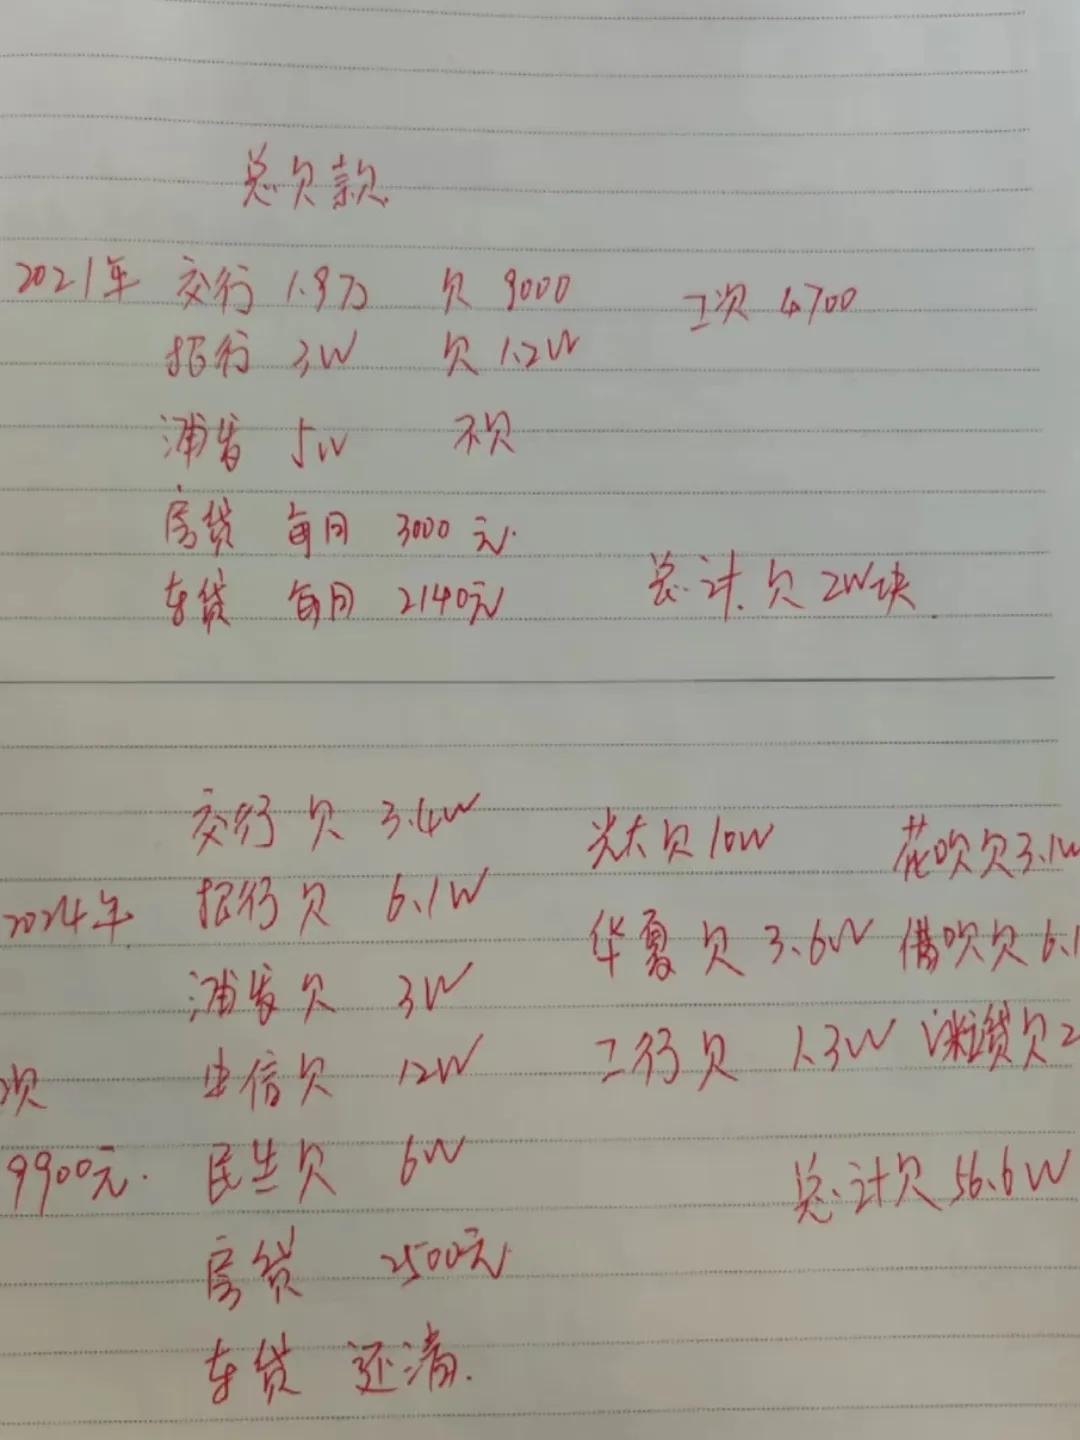 总欠款
2021年 交行 1.9万 欠 9000 工资 4700
招行 3W 欠 1.2W
浦发 5W 不欠
房贷 每月 3000元.
车贷 每月 2140元 总计欠 2W块.
交行 欠 3.4W 光大欠 10W 花呗欠 3.1W
2024年 招行 欠 6.1W 华夏 欠 3.6W 借呗欠 6.1
浦发欠 3W 工行欠 1.3W 欠2
资 中信欠 12W
9900元. 民生欠 6W 总计欠 56.6W
房贷 2500元
车贷 还清.